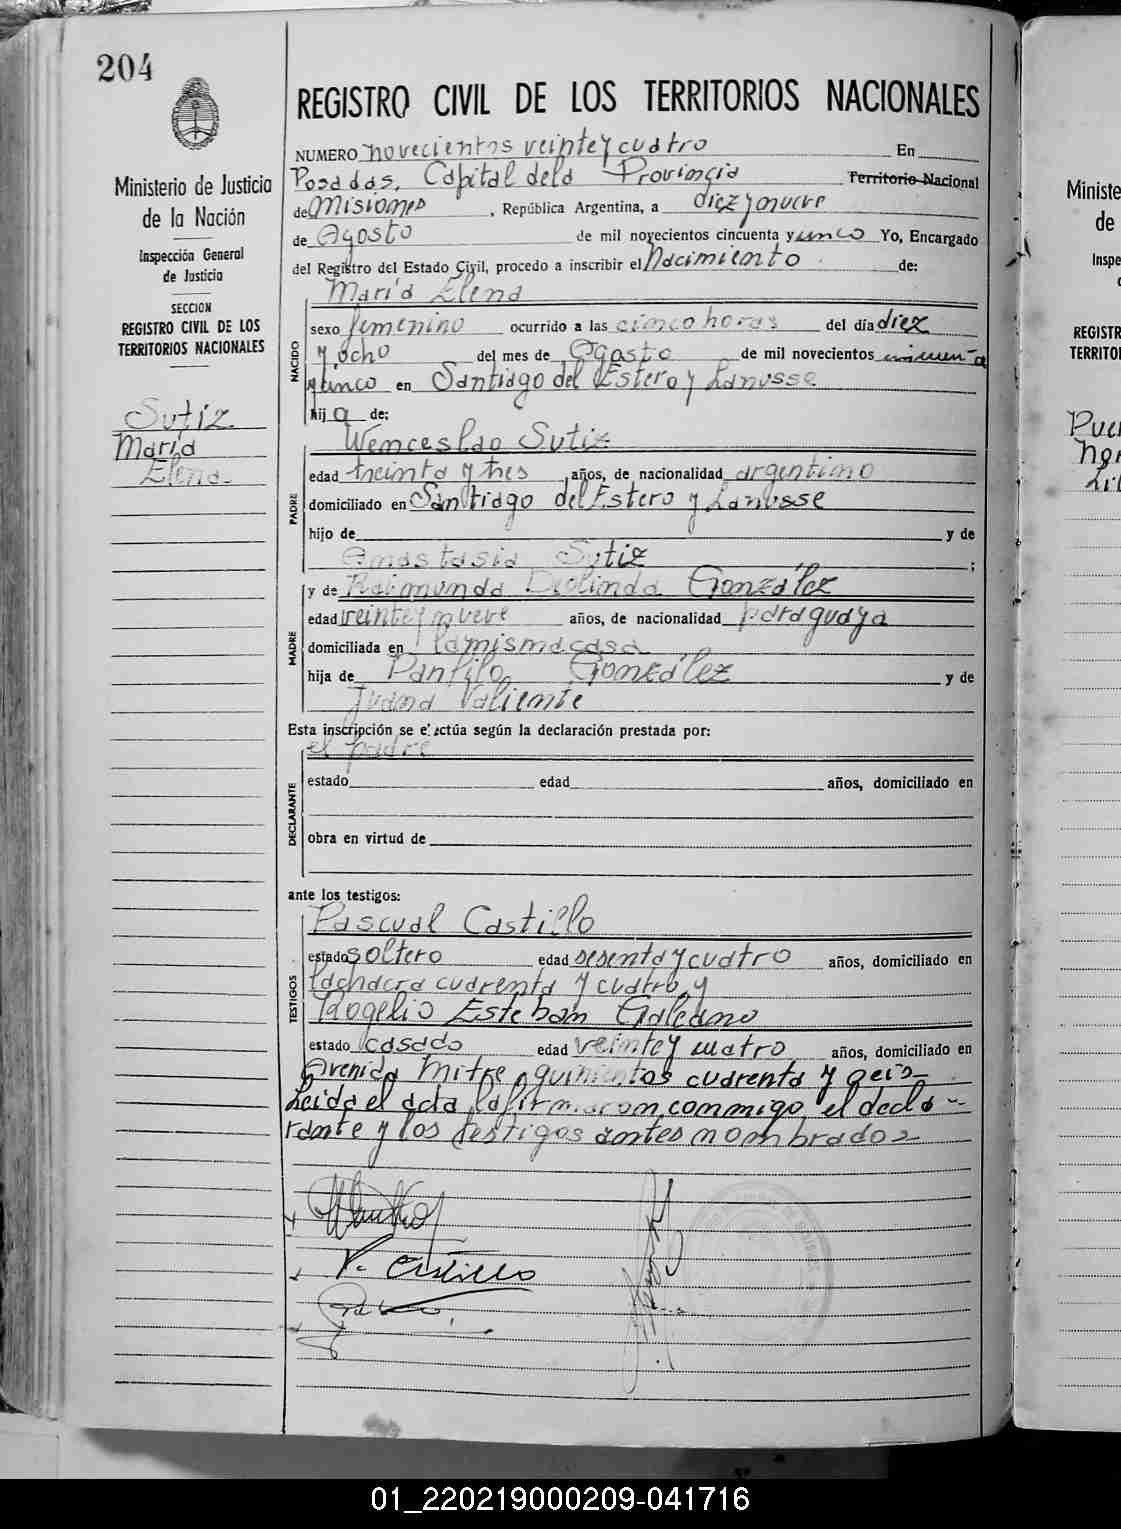 204
Ministerio de Justicia
de la Nación
Inspección General
de Justicia
SECCION
REGISTRO CIVIL DE LOS
TERRITORIOS NACIONALES
Sutiz
María
Elena.
REGISTRO CIVIL DE LOS TERRITORIOS NACIONALES
NUMERO novecientos veinte y cuatro En
Posadas, Capital de la Provincia Territorio Nacional
de Misiones, República Argentina, a diez y nueve
de Agosto de mil novecientos cincuenta y cinco Yo, Encargado
del Registro del Estado Civil, procedo a inscribir el Nacimiento de:
NACIDO
María Elena
sexo femenino ocurrido a las cinco horas del día diez
y ocho del mes de Agosto de mil novecientos cincuenta
y cinco en Santiago del Estero y Lanusse
hija de:
PADRE
Wenceslao Sutiz
edad treinta y tres años, de nacionalidad argentino
domiciliado en Santiago del Estero y Lanusse
hijo de y de
Anastasia Sutiz ;
MADRE
y de Raimunda Deolinda González
edad veinte y nueve años, de nacionalidad paraguaya
domiciliada en la misma casa
hija de Panfilo González y de
Juana Valiente
Esta inscripción se efectúa según la declaración prestada por:
DECLARANTE
el padre
estado edad años, domiciliado en
obra en virtud de
ante los testigos:
TESTIGOS
Pascual Castillo
estado soltero edad sesenta y cuatro años, domiciliado en
la chacra cuarenta y cuatro y
Rogelio Esteban Galeano
estado casado edad veinte y cuatro años, domiciliado en
Avenida Mitre quinientos cuarenta y seis-
Leida el acta la firmaron conmigo el decla-
rante y los testigos antes nombrados
P. Castillo
Ministe
de
Inspe
REGISTR
TERRITO
01_220219000209-041716